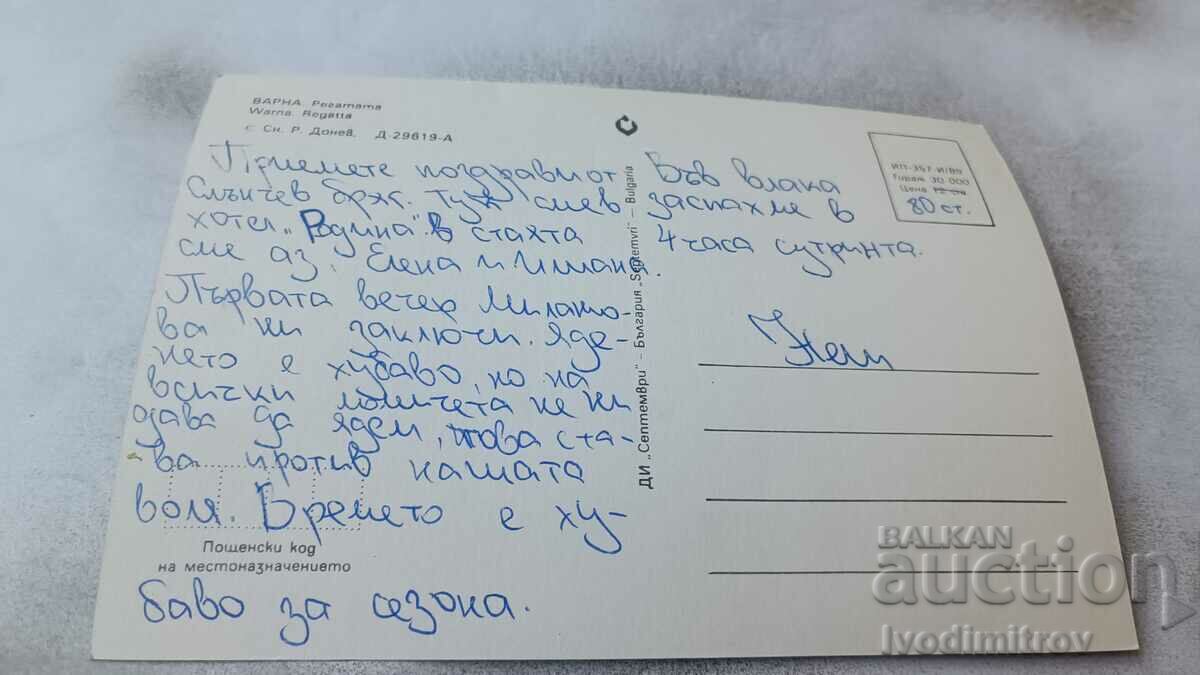 ВАРНА. Регатата
Warna. Regatta
с. Сн. Р. Донев, Д-29619-А
Приемете поздрави от
Слънчев бряг. Тук сме в
хотел „Родина". В стаята
сме аз, Елена и
Първата вечер
ва ни заключи. Яде-
нето е хубаво, но на
всички момичета не ни
се дава да ядем, това ста-
ва против нашата
воля. Времето е ху-
баво за сезона.
Пощенски код
на местоназначението
ДИ „Септември" – България „Septemvri" – Bulgaria
Във влака
заспахме в
4 часа сутринта.
ИП-357-И/89
Тираж 30 000
Цена 12 ст.
80 ст.
Нели
BALKAN
auction
Ivodimitrov